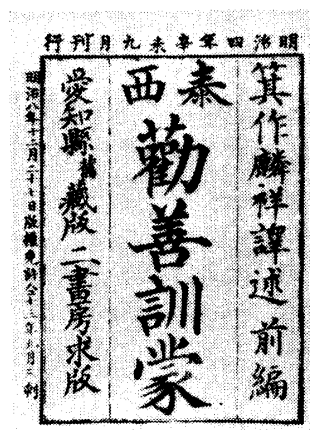 明治四年辛未九月刊行
箕作麟祥譯述 前編
泰西
勸善訓蒙
愛知縣舊藏版 二書房求版
明治八年十二月二十七日版權免許